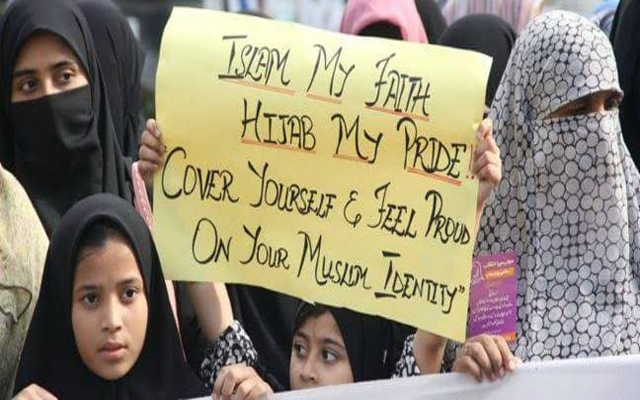 ISLAM MY FAITH
HIJAB MY PRIDE!!
COVER YOURSELF & FEEL PROUD
ON YOUR MUSLIM IDENTITY"